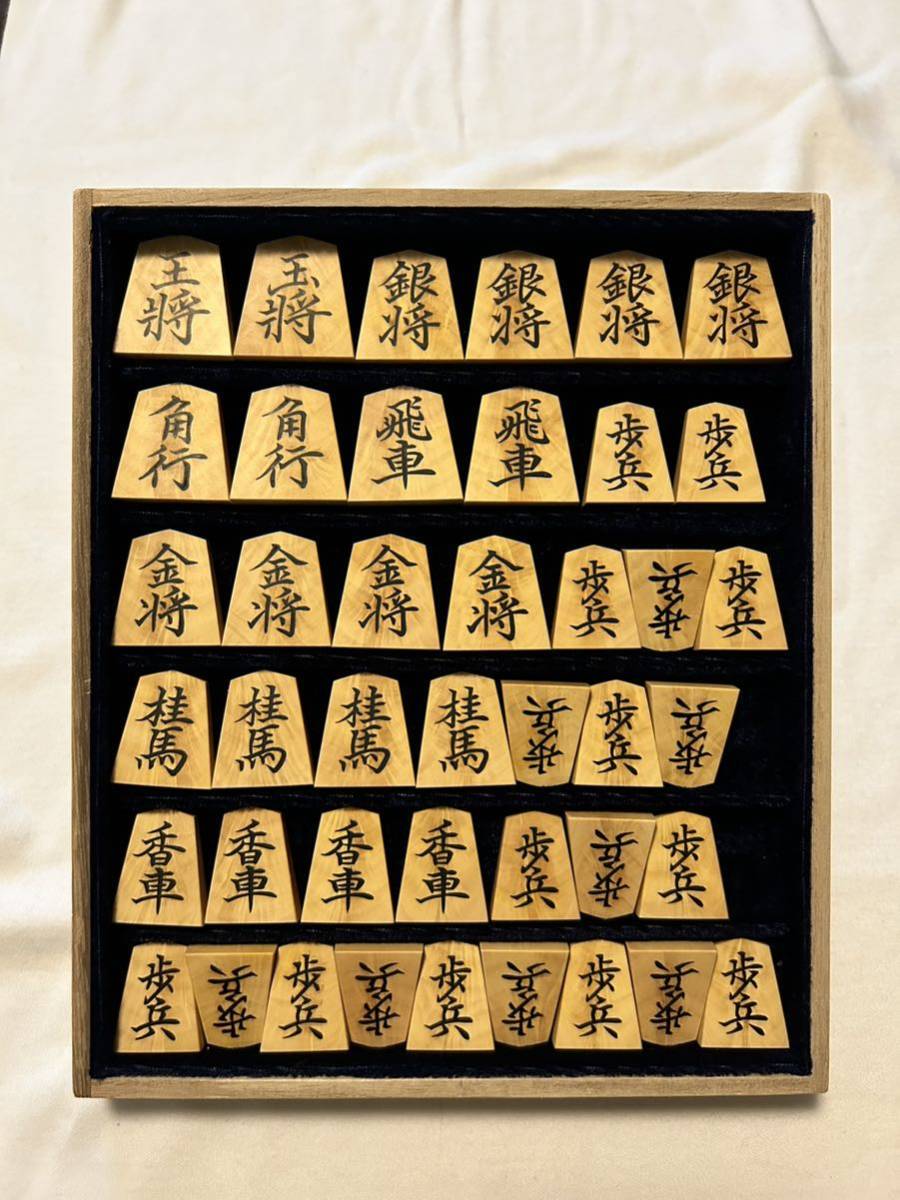 王將 玉將 銀将 銀将 銀将 銀将
角行 角行 飛車 飛車 歩兵 歩兵
金将 金将 金将 金将 歩兵 歩兵 歩兵
桂馬 桂馬 桂馬 桂馬 歩兵 歩兵 歩兵
香車 香車 香車 香車 歩兵 歩兵 歩兵
歩兵 歩兵 歩兵 歩兵 歩兵 歩兵 歩兵 歩兵 歩兵